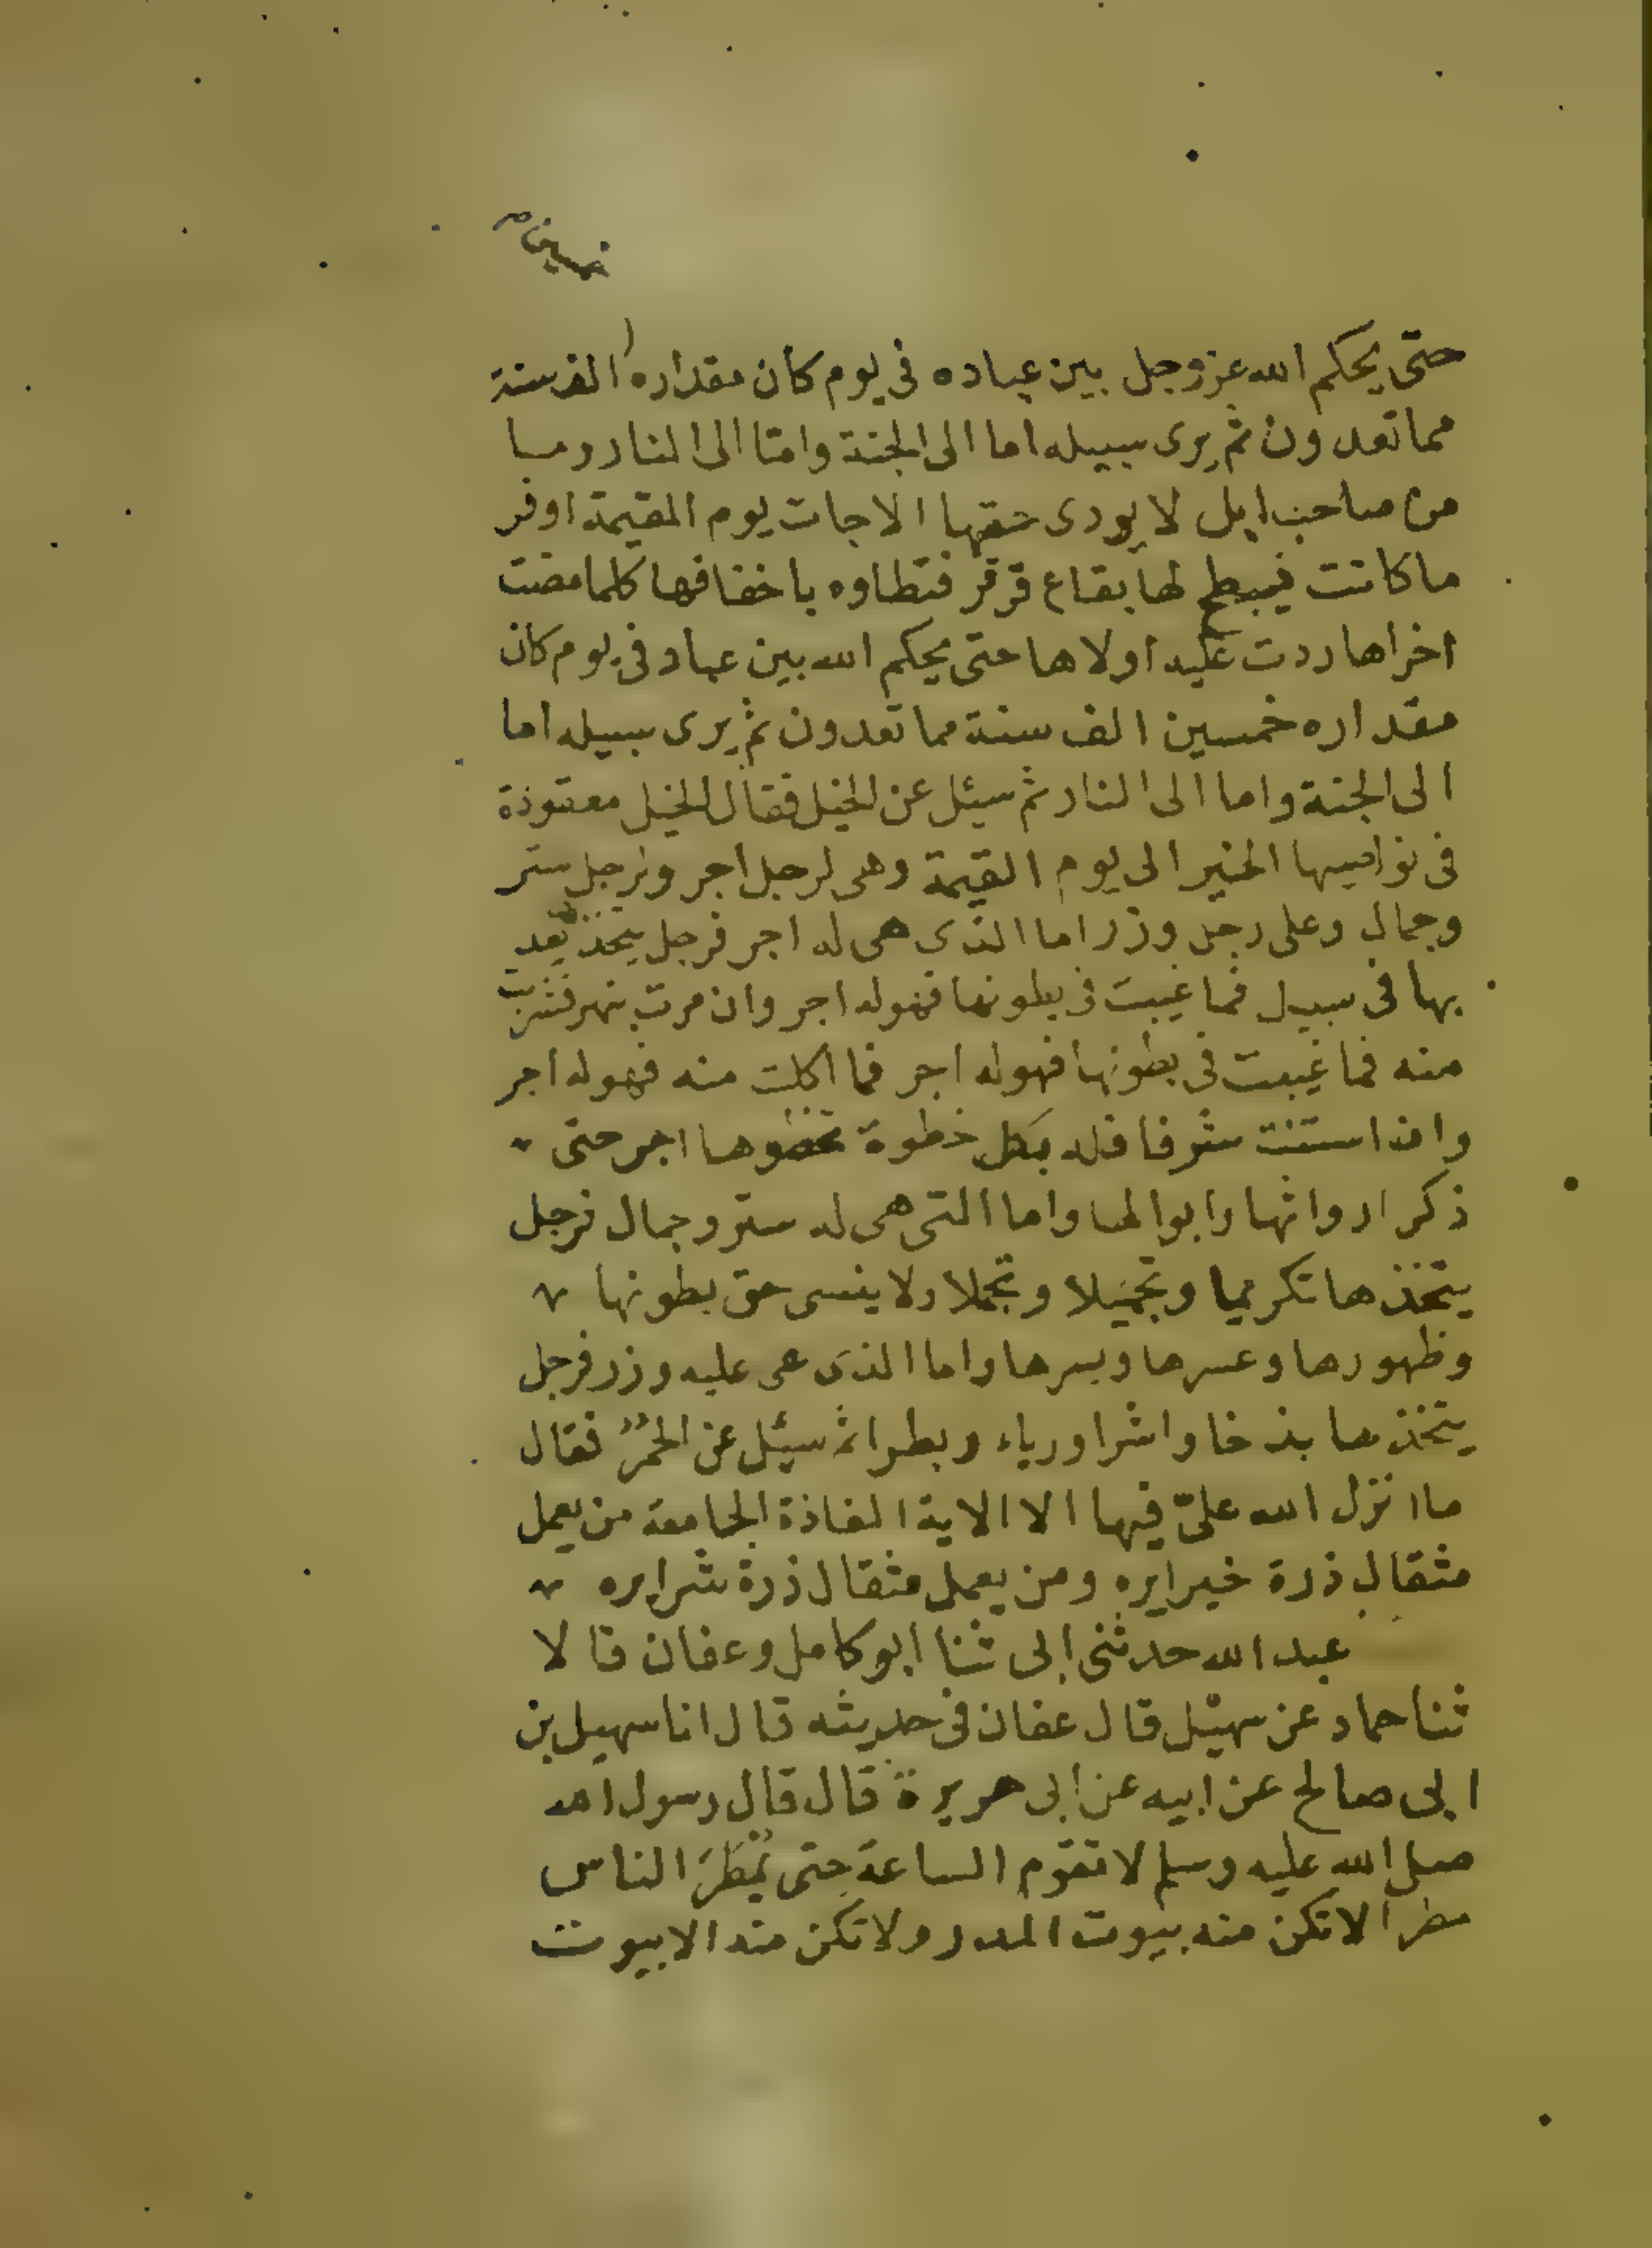 خمسين صح
حتى يحكم الله عز وجل بين عباده فى يوم كان مقداره الف سنة
مما تعدون ثم يرى سبيله اما الى الجنة وامّا الى النار وما
من صاحب ابل لا يودى حقها الا جات يوم القيمة اوفر
ما كانت فيبطح لها بقاع قرقر فتطاوه باخفافها كلما مضت
اخراها ردت عليه اولاها حتى يحكم الله بين عباد فى يوم كان
مقداره خمسين الف سنة مما تعدون ثم يرى سبيله اما
الى الجنة واما الى النار ثم سيئل عن الخيل فقال الخيل معقودة
فى نواصيها الخير الى يوم القيمة وهى لرجل اجر ولرجل ستر
وجمال وعلى رجل وزر اما الذى هى له اجر فرجل يتخذ يعد
بها فى سبيل فما غيبت فى بطونها فهو له اجر وان مرت بنهر فشربت
منه فما غيبت فى بطونها فهو له اجر فما اكلت منه فهو له اجر
وان استنت شرفا فله بكل خطوة تخطوها اجر حتى
ذكر ارواثها وابوالها واما التى هى له ستر وجمال فرجل
يتخذها تكرميا وتجميلا وتجملا ولا ينسى حق بطونها
وظهورها وعسرها ويسرها واما الذى هى عليه وزر فرجل
يتخذها بذخا واشرا ورياء وبطرا ثم سيئل عن الحمر فقال
ما انزل الله علىّ فيها الا الاية الفاذة الجامعة من يعمل
مثقال ذرة خيرا يره ومن يعمل مثقال ذرة شرا يره
عبد الله حدثنى ابى ثنا ابو كامل وعفان قالا
ثنا حماد عن سهيل قال عفان فى حديثه قال انا سهيل بن
ابى صالح عن ابيه عن ابى هريرة قال قال رسول الله
صلى الله عليه وسلم لا تقوم الساعة حتى يُمْطَرَ الناس
مطرا لا تكن منه بيوت المدر ولا تكن منه الا بيوت